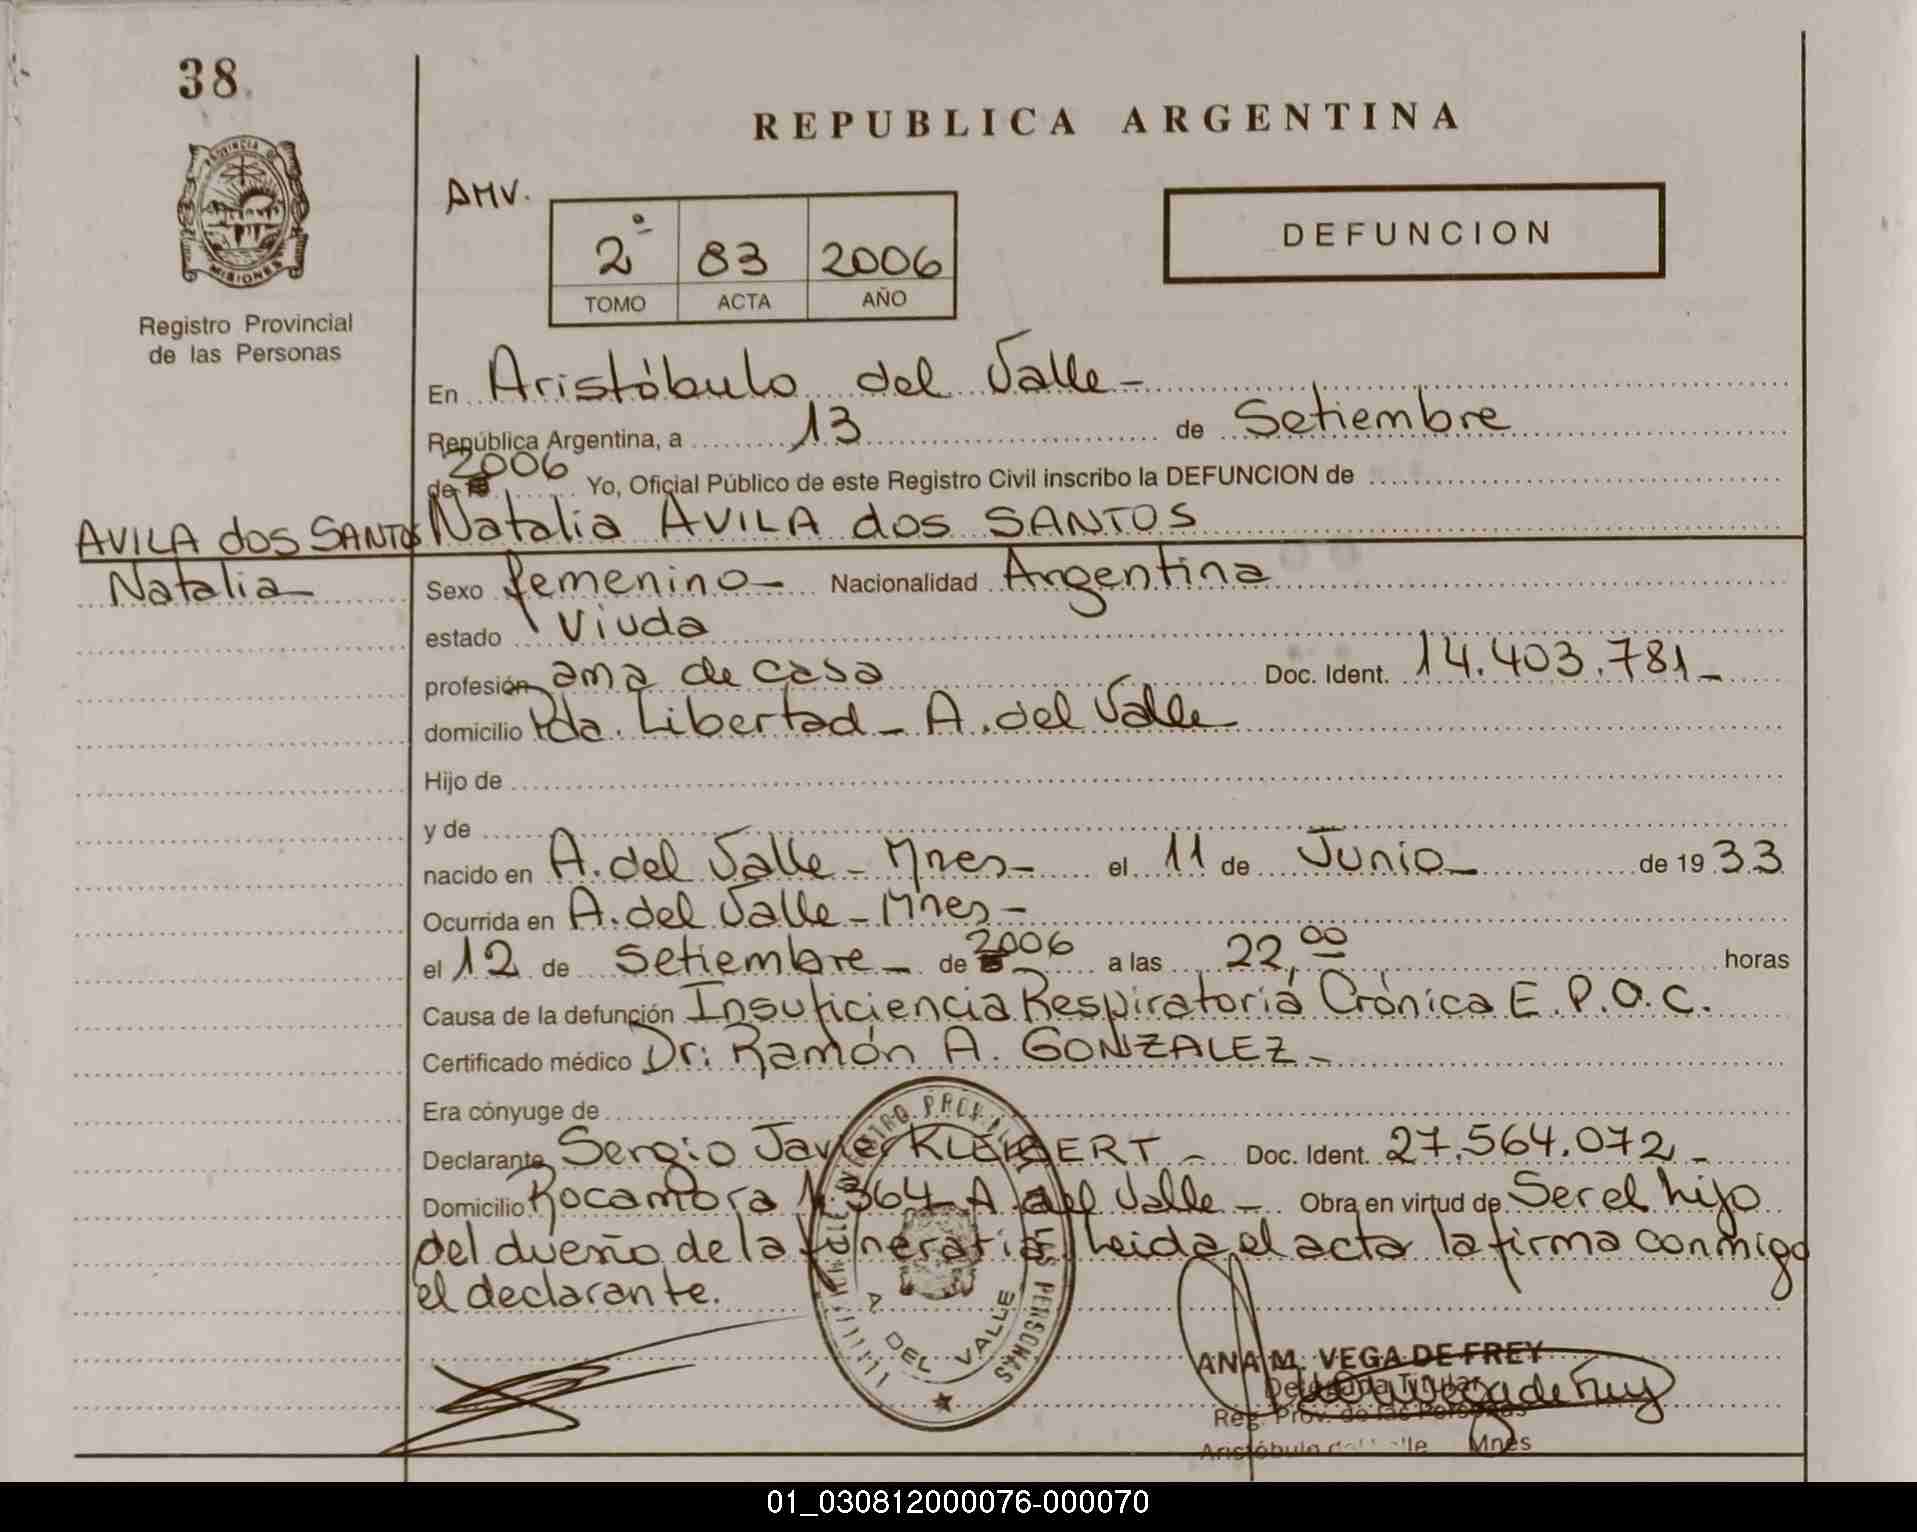 38
REPUBLICA ARGENTINA
PROVINCIA DE
MISIONES
Registro Provincial
de las Personas
AMV.
2º 83 2006
TOMO ACTA AÑO
DEFUNCION
En Aristóbulo del Valle -
República Argentina, a 13 de Setiembre
de 2006 Yo, Oficial Público de este Registro Civil inscribo la DEFUNCION de
AVILA dos SANTOS Natalia AVILA dos SANTOS
Natalia
Sexo femenino - Nacionalidad Argentina
estado Viuda
profesión ama de casa Doc. Ident. 14.403.781 -
domicilio Pda. Libertad - A. del Valle
Hijo de
y de
nacido en A. del Valle - Mnes - el 11 de Junio - de 1933
Ocurrida en A. del Valle - Mnes -
el 12 de Setiembre - de 2006 a las 22,00 horas
Causa de la defunción Insuficiencia Respiratoria Crónica E.P.O.C.
Certificado médico Dr: Ramón A. GONZALEZ -
Era cónyuge de
Declarante Sergio Javier KLEIBERT - Doc. Ident. 27.564.072 -
Domicilio Rocamora 1.364 - A. del Valle - Obra en virtud de Ser el hijo
del dueño de la funeraria. Leida el acta la firma conmigo
el declarante.
A DEL VALLE
ANA M. VEGA DE FREY
Delegada Titular
Reg. Prov. de las Personas
Aristóbulo del Valle Mnes
01_030812000076-000070